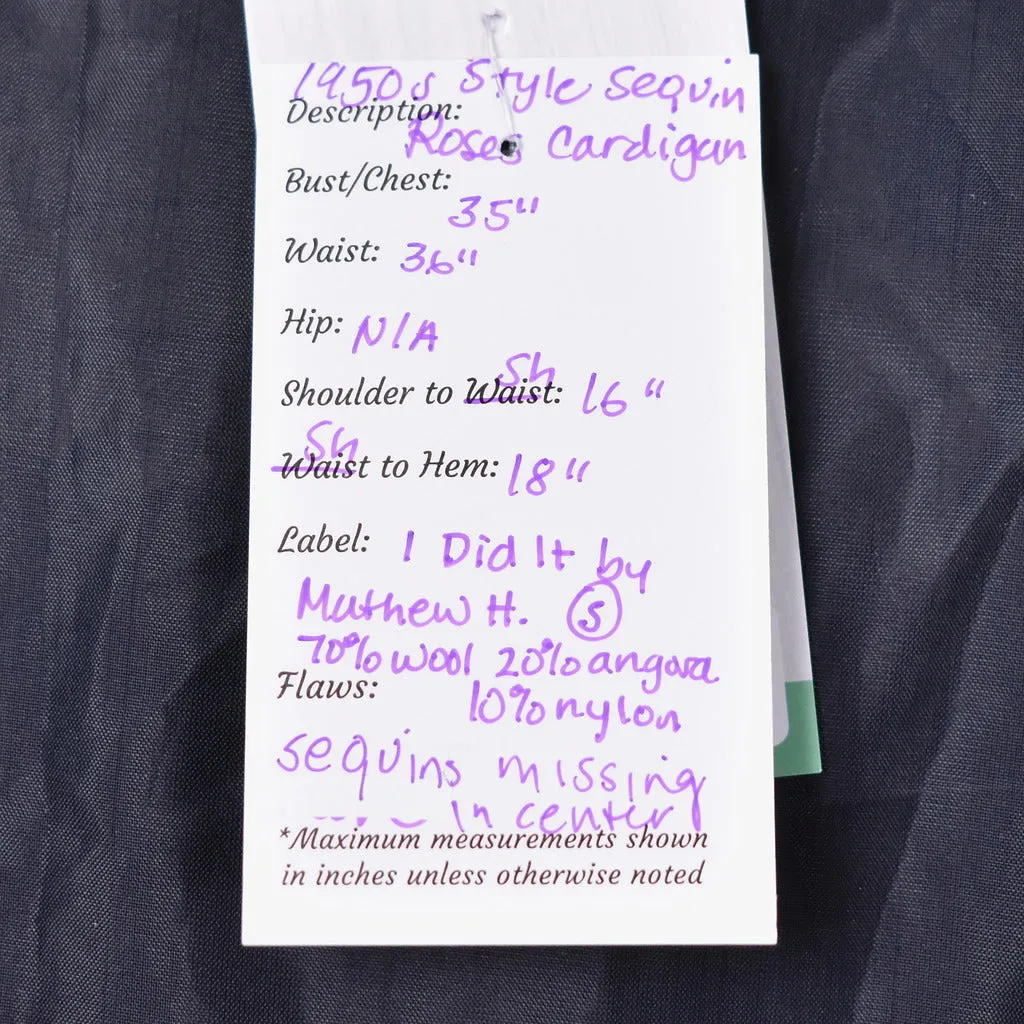 1950s Style Sequin
Description:
Roses Cardigan
Bust/Chest:
35"
Waist: 36"
Hip: N/A
Sh
Shoulder to Waist: 16"
Sh
Waist to Hem: 18"
Label: I Did It by
Mathew H. S
70% wool 20% angora
Flaws:
10% nylon
sequins missing
in center
*Maximum measurements shown
in inches unless otherwise noted